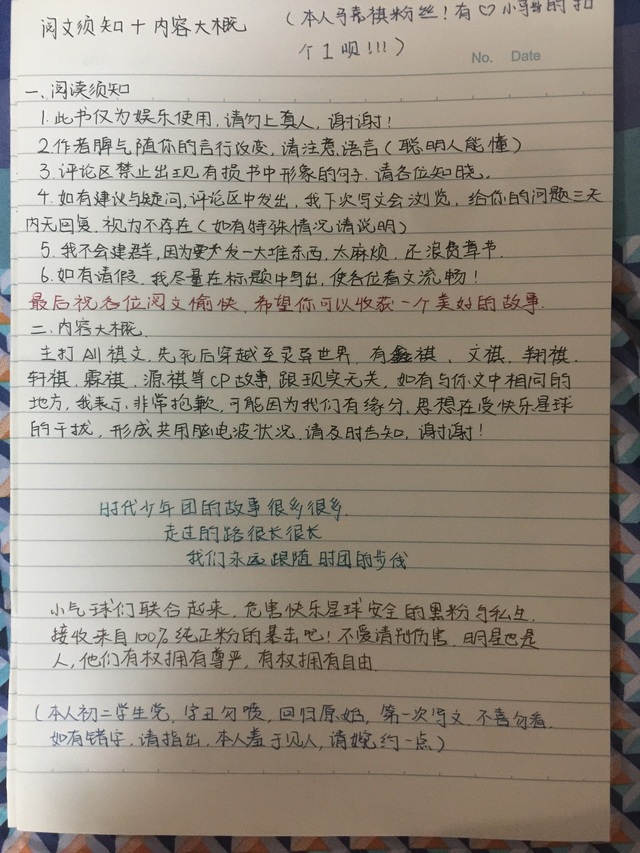 阅文须知+内容大概
(本人马嘉祺粉丝!有♡小哥的扣
个1呗!!!)
No. Date
一、阅读须知
1.此书仅为娱乐使用,请勿上真人,谢谢!
2.作者脾气随你的言行改变,请注意语言(聪明人能懂)
3.评论区禁止出现有损书中形象的句子,请各位知晓。
4.如有建议与疑问,评论区中发出,我下次写文会浏览,给你的问题三天
内无回复,视为不存在(如有特殊情况请说明)
5.我不会建群,因为要发一大堆东西,太麻烦,还浪费章节.
6.如有请假,我尽量在标题中写出,使各位看文流畅!
最后祝各位阅文愉快,希望你可以收获一个美好的故事.
二.内容大概.
主打All祺文,先死后穿越至灵异世界,有鑫祺、文祺,翔祺,
轩祺,霖祺,源祺等CP故事,跟现实无关,如有与你文中相同的
地方,我表示非常抱歉,可能因为我们有缘分,思想在受快乐星球
的干拔,形成共用脑电波状况,请及时告知,谢谢!
时代少年团的故事很多很多
走过的路很长很长
我们永远跟随时团的步伐
小气球们联合起来,危害快乐星球安全的黑粉与私生,
接收来自100%纯正粉的暴击吧!不爱请别伤害,明星也是
人,他们有权拥有尊严,有权拥有自由
(本人初二学生党,字丑勿喷,回归原始,第一次写文,不喜勿看.
如有错字,请指出,本人羞于见人,请婉约一点)